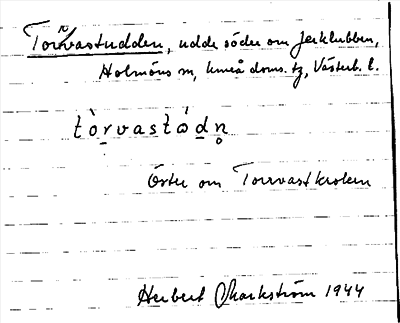 Torrvastudden, udde söder om Jerklubben,
Holmöns sn, Umeå doms. tg, Västerb. l.
tòrvastòdn̥
Öster om Torrvastkroken
Herbert Markström 1944